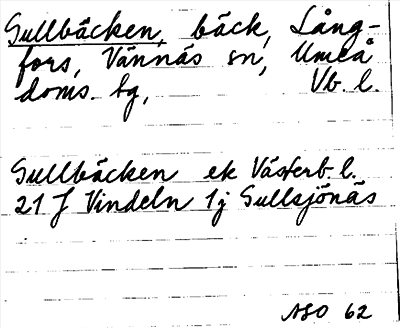 Gullbäcken, bäck, Lång-
fors, Vännäs sn, Umeå
doms. tg, Vb. l.
Gullbäcken ek Västerb. l.
21 f Vindeln 1 j Gullsjönäs
ASO 62